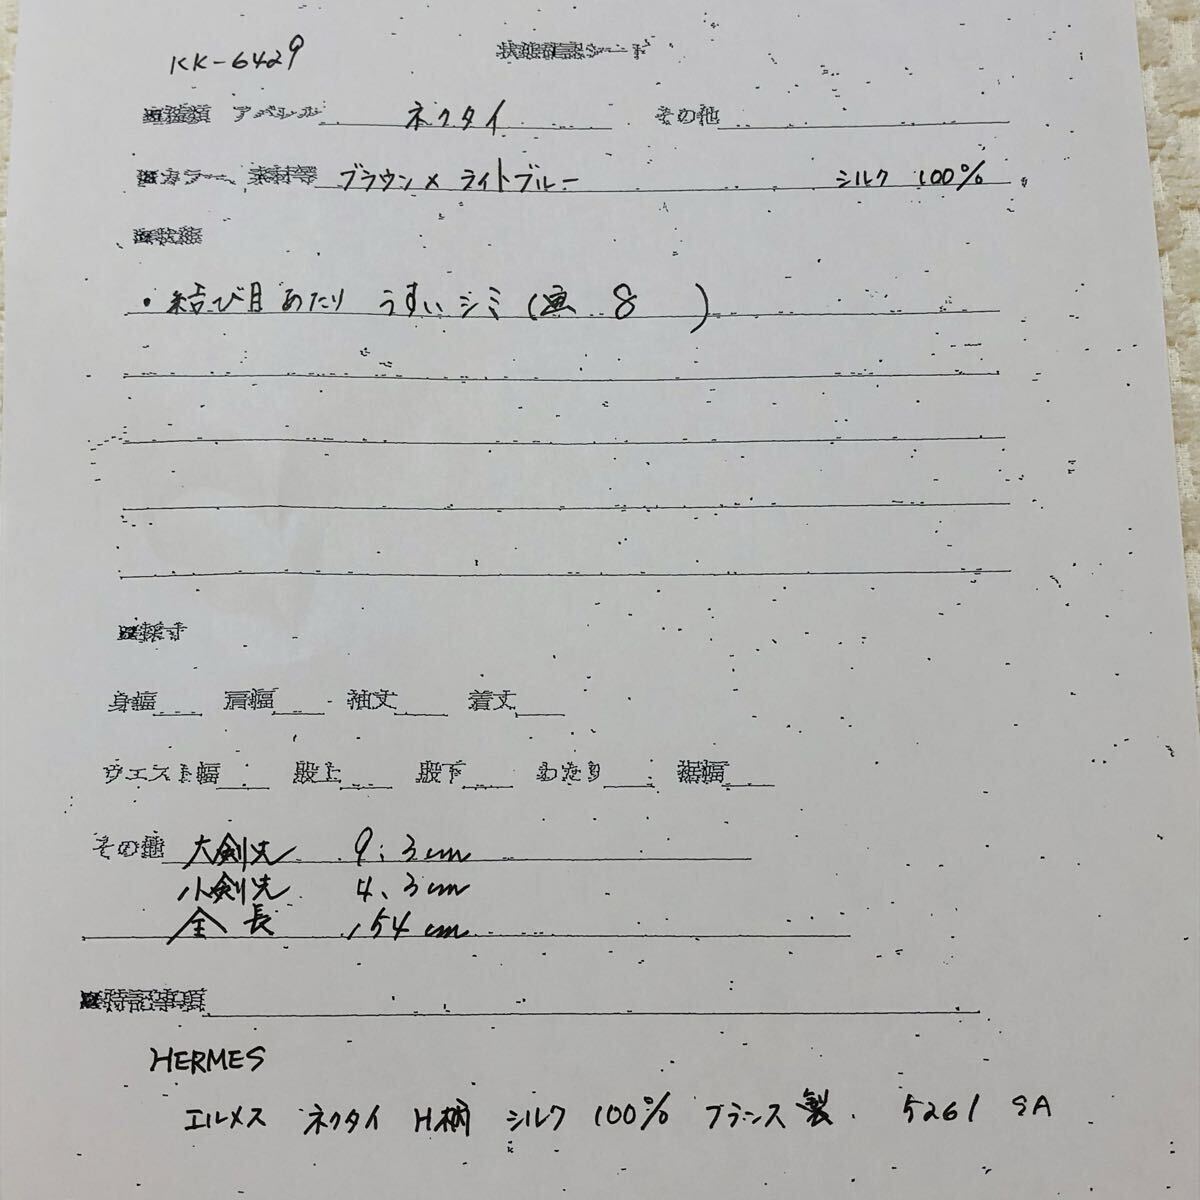 KK-6429
状態確認シート
■種類 アパレル ネクタイ その他
■カラー、素材等 ブラウン×ライトブルー シルク 100%
■状態
・結び目あたり うすいシミ(画 8 )
■採寸
身幅 肩幅 袖丈 着丈
ウエスト幅 股上 股下 わたり 裾幅
その他 大剣先 9.3cm
小剣先 4.3cm
全長 154cm
■特記事項
HERMES
エルメス ネクタイ H柄 シルク 100% フランス製. 5261 SA